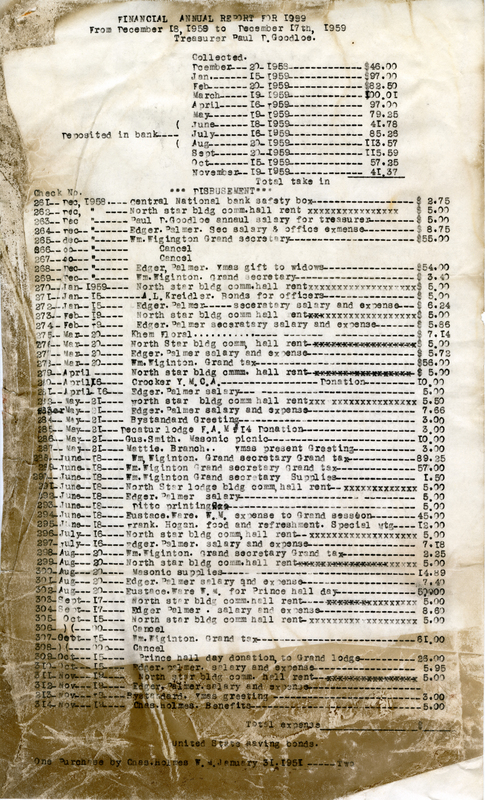 FINANCIAL ANNUAL REPORT FOR 1959
From December 18, 1958 to December 17th, 1959
Treasurer Paul D.Goodloe.
Collected.
Dcember---20-1958-----$46.00
Jan.-----15-1959-----$97.00
Feb-----20-1959-----$62.50
March----19-1959-----100.01
April----16-1959-----97.00
May-----19-1959-----79.25
( June----18-1959-----41.78
Deposited in bank---- July----16-1959-----85.26
( Aug----20-1959-----113.57
Sept----20-1959-----115.59
Oct-----15-1959-----57.25
November--19-1959-----41.37
Total take in
Check No. *** DISBUSEMENT***
261-- Dec, 1958---- central National bank safety box----$ 2.75
262--Dec, "---- North star bldg comm.hall rent xxxxxxxxxxxxxxxx $ 5.00
263--Dec "---- Paul D.Goodloe annual salary for treasurer----$ 5.00
264--Dec----"---- Edger.Palmer. Sec salary & office expense----$ 8.75
265--dec----"---- Wm.Wigington Grand secretary----$55.00
266--do----"---- Cancel
267--do----"---- Cancel
268--Dec.---"---- Edger,Palmer. Xmas gift to widows----$54.00
269--Dec.---"---- Wm.Wiginton. Grand secretary----$ 3.40
270--Jan 1959---- North star bldg comm.hall rent----$ 5.00
271--Jan. 15---- A.L.Kreidler. Bonds for officers----$ 5.00
272--Jan--15---- Edger.Palmer---secretary salary and expense---$ 6.24
273--Feb--19---- North star bldg comm,hall rent----$ 5.00
274--Feb--19---- Edger.Palmer secretary salary and expense----$ 5.86
275--Mar--20---- Khem Floral..........----$ 7.14
Mar--20---- North Star bldg comm, hall rent----$ 5.00
Mar--20---- Edger.Palmer salary and expense----$ 5.72
Mar--20---- Wm.Wiginton. Grand tax----$56.00
279--April---- North star bldg comm. hall rent----$ 5.00
April16---- Crocker Y.M.C.A.----Donation----10.00
April-16---- Edger.Palmer salary----5.00
May---- North star bldg comm hall rent----5.50
May---- Edger.Palmer salary and expense----7.66
284--May--21---- Bystandard Greeting----3.00
May--21----Decatur lodge F.A,M #14 Donation----3.00
May--21---- Gus.Smith. Masonic picnic----10.00
May--21---- Mattie. Branch. xmas present Greeting----3.00
June--18---- Wm,Wiginton. Grand secretary Grand tax----89.25
June--18---- Wm.Wiginton Grand secretary Grand tax----57.00
June--18---- Wm.Wiginton Grand secretary Supplies----1.50
June--18---- North Star lodge bldg comm,hall rent--xxxxxxxxx---5.00
June--18---- Edger.Palmer salary----5.00
June--18---- Ditto printing----5.00
June--18---- Eustace.Ware. W.M, expense to Grand session----45.00
295--June--18---- Frank. Hogan. food and refreshment. Special mtg--12.00
296--July--16---- North star bldg comm,hall rent----xxxxxxxxxxxx---5.00
297--July--16---- Edger.Palmer. salary and expense----7.18
298--Aug--20---- Wm.Wiginton. Grand secretary Grand tax----2.25
299--Aug--20---- North star bldg comm.hall rent----5.00
300--Aug--20---- Masonic supplies----14.89
301--Aug---- Edger.Palmer salary qnd expense----7.40
302--Aug--20---- Eustace.Ware W.M. for Prince hall day----
303--Sept--17---- North star bldg comm,hall rent----xxxxxxxxxxxx---5.00
304--Sept--17---- Edger Palmer . salary and expense----8.60
305--Oct--15---- North star bldg comm.hall rent----xxxxxxxxxxxx---5.00
306--)(--Do---- Cancel
307-Octt--15---- Wm.Wiginton. Grand tax----61.00
308-)(--Do---- Cancel
309-Oct--15---- Prince hall day donation, to Grand lodge----26.00
Oct--15---- Edger.palmer. salary and expense----5.95
311--Nov--18---- North star bldg comm. hall rent----5.00
312--Nov--18---- Edger.Palmer.salary and expense----
313--Nov--18---- xmas greeting----3.00
Nov--18---- Chas.Holmes. Benefits----5.00
Total expense____$
United State saving bonds.
One Purchase by Chas.Holmes W.M.January 31,1951 -----Two